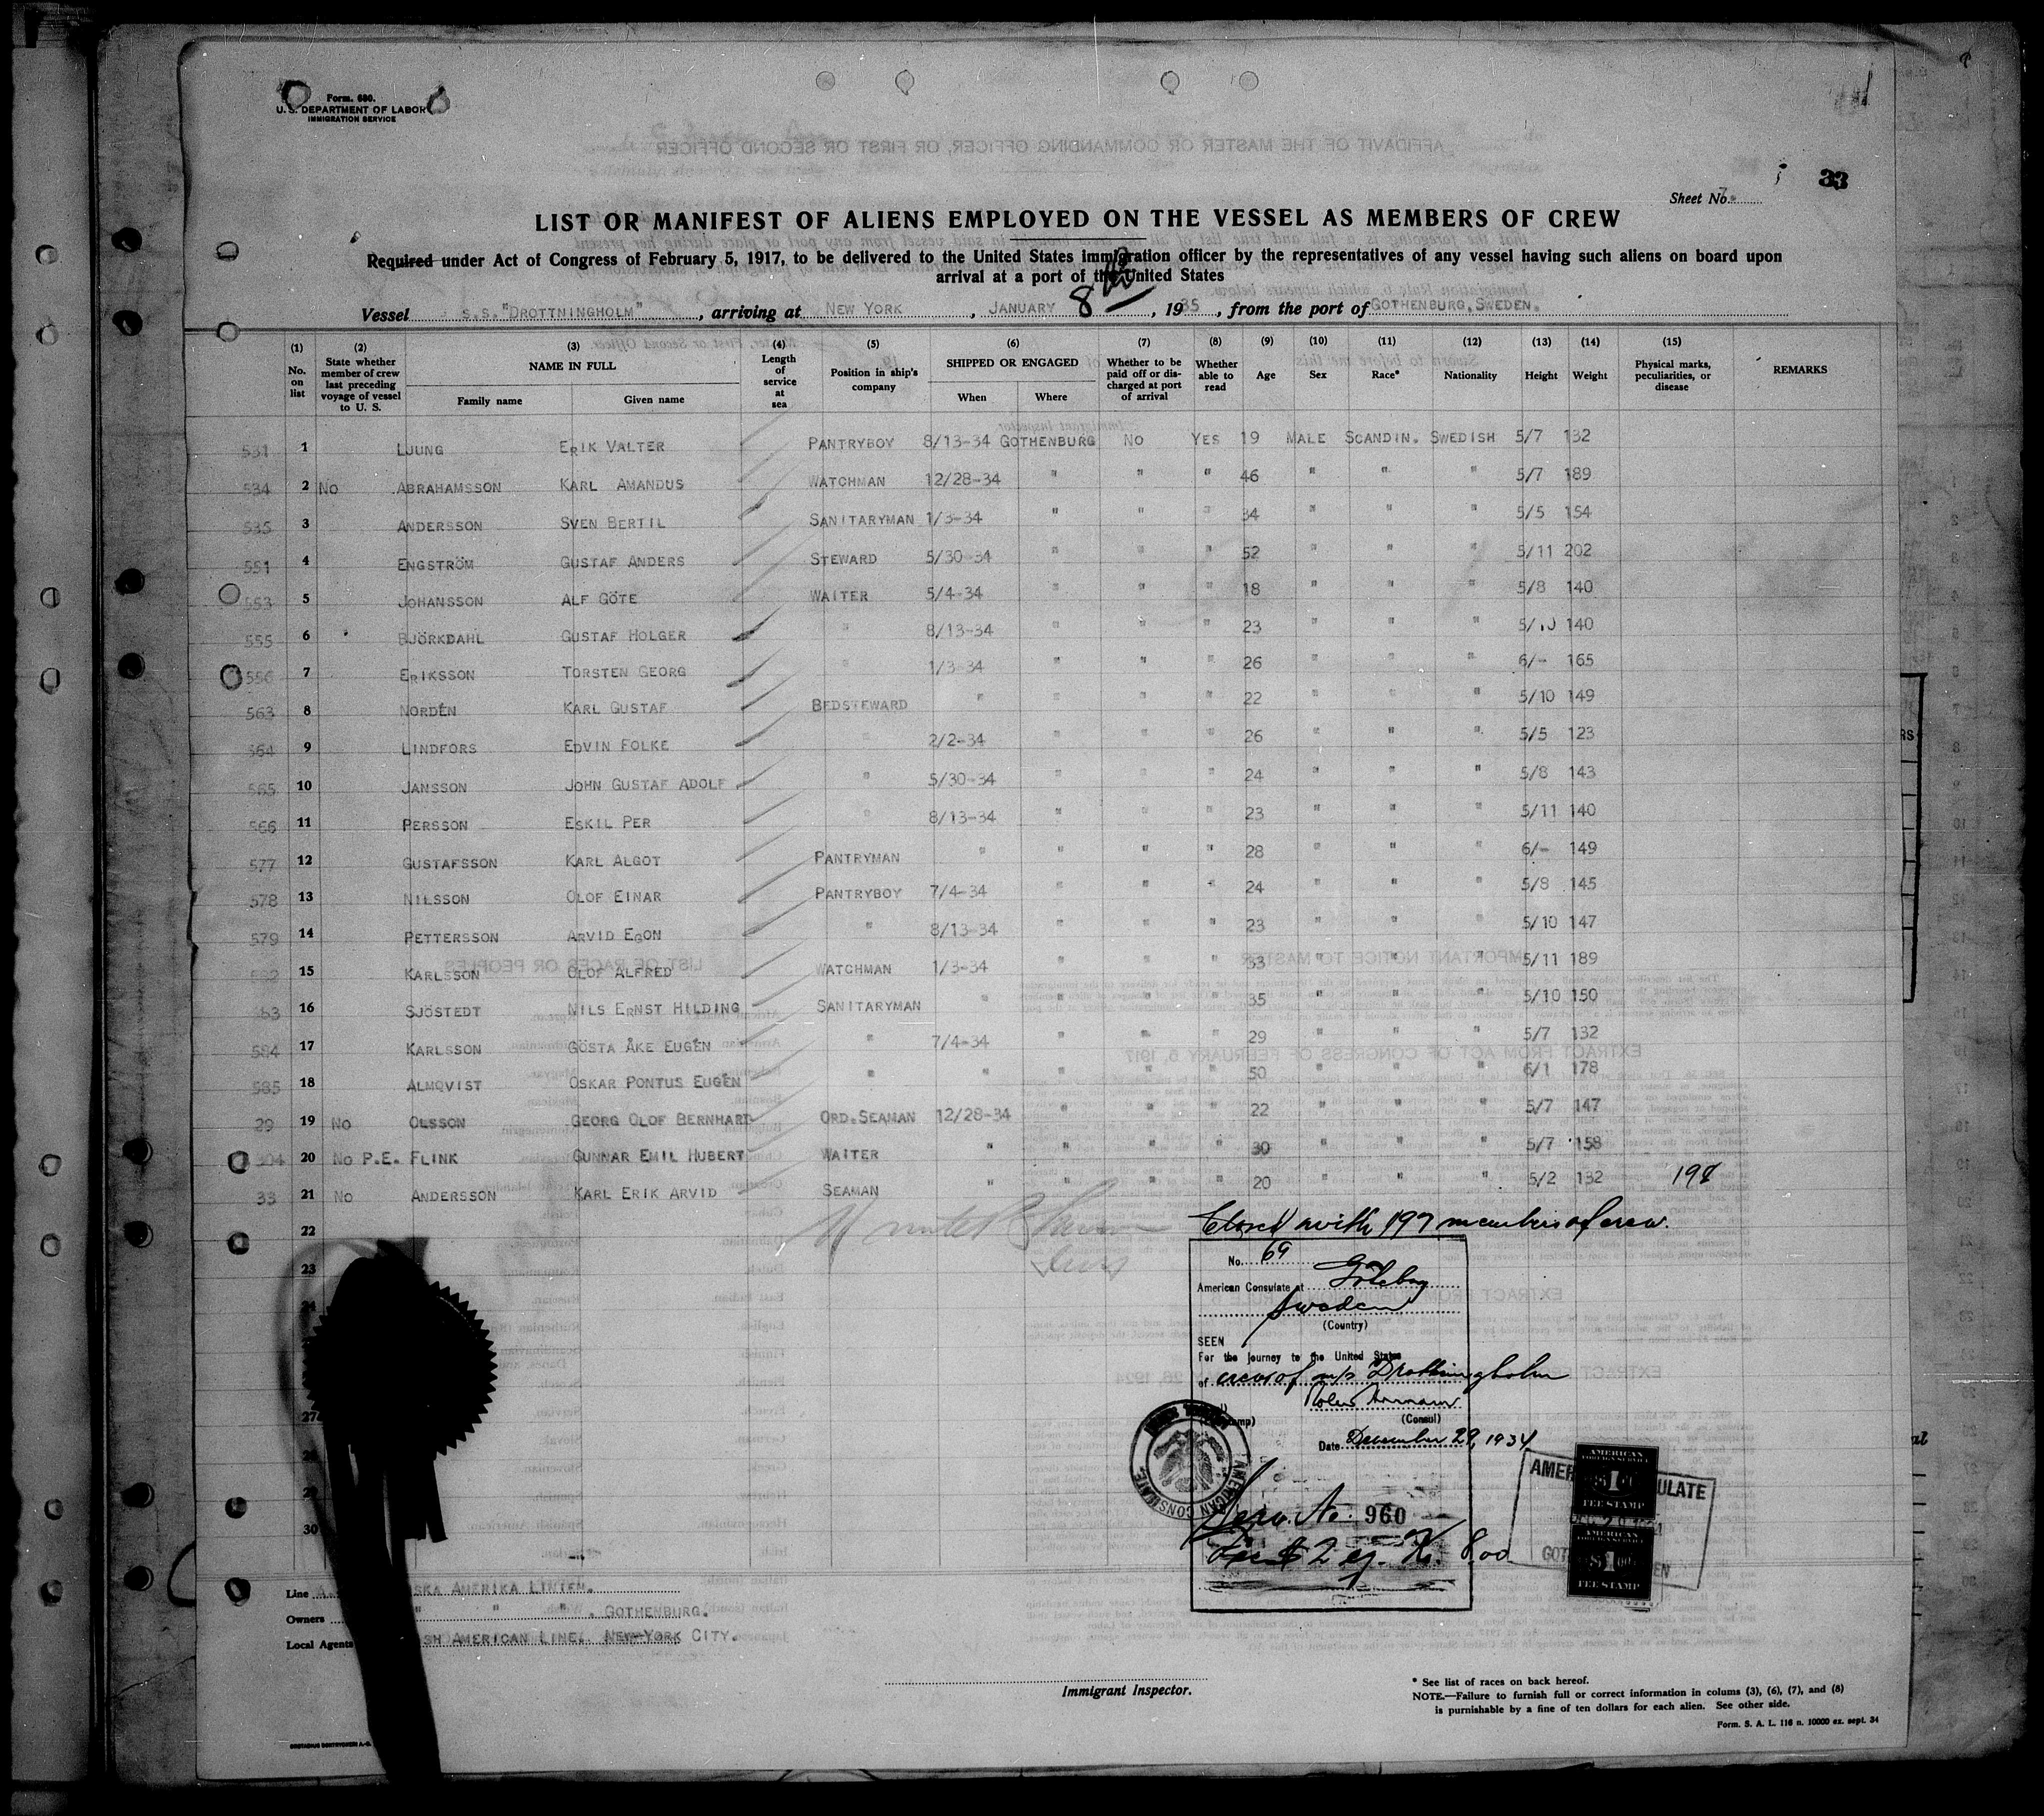 Form. 680.
U. S. DEPARTMENT OF LABOR
IMMIGRATION SERVICE
33
Sheet No. 7.
LIST OR MANIFEST OF ALIENS EMPLOYED ON THE VESSEL AS MEMBERS OF CREW
Required under Act of Congress of February 5, 1917, to be delivered to the United States immigration officer by the representatives of any vessel having such aliens on board upon
arrival at a port of the United States
Vessel S.S."DROTTNINGHOLM" , arriving at NEW YORK , JANUARY 8th , 1935 , from the port of GOTHENBURG, SWEDEN.
(1) No. on list (2) State whether member of crew last preceding voyage of vessel to U. S. (3) NAME IN FULL Family name Given name (4) Length of service at sea (5) Position in ship's company (6) SHIPPED OR ENGAGED When Where (7) Whether to be paid off or discharged at port of arrival (8) Whether able to read (9) Age (10) Sex (11) Race* (12) Nationality (13) Height (14) Weight (15) Physical marks, peculiarities, or disease REMARKS
531 1 LJUNG ERIK VALTER PANTRYBOY 8/13-34 GOTHENBURG NO YES 19 MALE SCANDIN. SWEDISH 5/7 132
534 2 NO ABRAHAMSSON KARL AMANDUS WATCHMAN 12/28-34 " " " 46 " " " 5/7 189
535 3 ANDERSSON SVEN BERTIL SANITARYMAN 1/3-34 " " " 34 " " " 5/5 154
551 4 ENGSTRÖM GUSTAF ANDERS STEWARD 5/30-34 " " " 52 " " " 5/11 202
553 5 JOHANSSON ALF GÖTE WAITER 5/4-34 " " " 18 " " " 5/8 140
555 6 BJÖRKDAHL GUSTAF HOLGER " 8/13-34 " " " 23 " " " 5/10 140
556 7 ERIKSSON TORSTEN GEORG " 1/3-34 " " " 26 " " " 6/- 165
563 8 NORDÉN KARL GUSTAF BEDSTEWARD " " " " 22 " " " 5/10 149
564 9 LINDFORS EDVIN FOLKE " 2/2-34 " " " 26 " " " 5/5 123
565 10 JANSSON JOHN GUSTAF ADOLF " 5/30-34 " " " 24 " " " 5/8 143
566 11 PERSSON ESKIL PER " 8/13-34 " " " 23 " " " 5/11 140
577 12 GUSTAFSSON KARL ALGOT PANTRYMAN " " " " 28 " " " 6/- 149
578 13 NILSSON OLOF EINAR PANTRYBOY 7/4-34 " " " 24 " " " 5/8 145
579 14 PETTERSSON ARVID EGON " 8/13-34 " " " 23 " " " 5/10 147
15 KARLSSON OLOF ALFRED WATCHMAN 1/3-34 " " " 33 " " " 5/11 189
583 16 SJÖSTEDT NILS ERNST HILDING SANITARYMAN " " " " 35 " " " 5/10 150
584 17 KARLSSON GÖSTA ÅKE EUGÉN " 7/4-34 " " " 29 " " " 5/7 132
585 18 ALMQVIST OSKAR PONTUS EUGÉN " " " " " 50 " " " 6/1 178
29 19 NO OLSSON GEORG OLOF BERNHARD ORD.SEAMAN 12/28-34 " " " 22 " " " 5/7 147
304 20 NO P.E. FLINK GUNNAR EMIL HUBERT WAITER " " " " 30 " " " 5/7 158
33 21 NO ANDERSSON KARL ERIK ARVID SEAMAN " " " " 20 " " " 5/2 132 197
22
Closed with 197 members of crew.
23
No. 69
American Consulate at Göteborg
Sweden
(Country)
SEEN
For the journey to the United States
of crew of m/s Drottningholm
(Consul)
Date December 29, 1934
27
AMERICAN CONSULATE
Serv. No. 960
Fee $ 2 eq. Kr. 8.00
29
30
AMERICAN
FOREIGN SERVICE
$1.00
FEE STAMP
AMERICAN
FOREIGN SERVICE
$1.00
FEE STAMP
Line SKA AMERIKA LINIEN.
Owners " " ". GOTHENBURG.
Local Agents SH AMERICAN LINE. NEW-YORK CITY.
Immigrant Inspector.
* See list of races on back hereof.
NOTE.—Failure to furnish full or correct information in colums (3), (6), (7), and (8)
is punishable by a fine of ten dollars for each alien. See other side.
Form. S. A. L. 116 n. 10000 ex. sept. 34